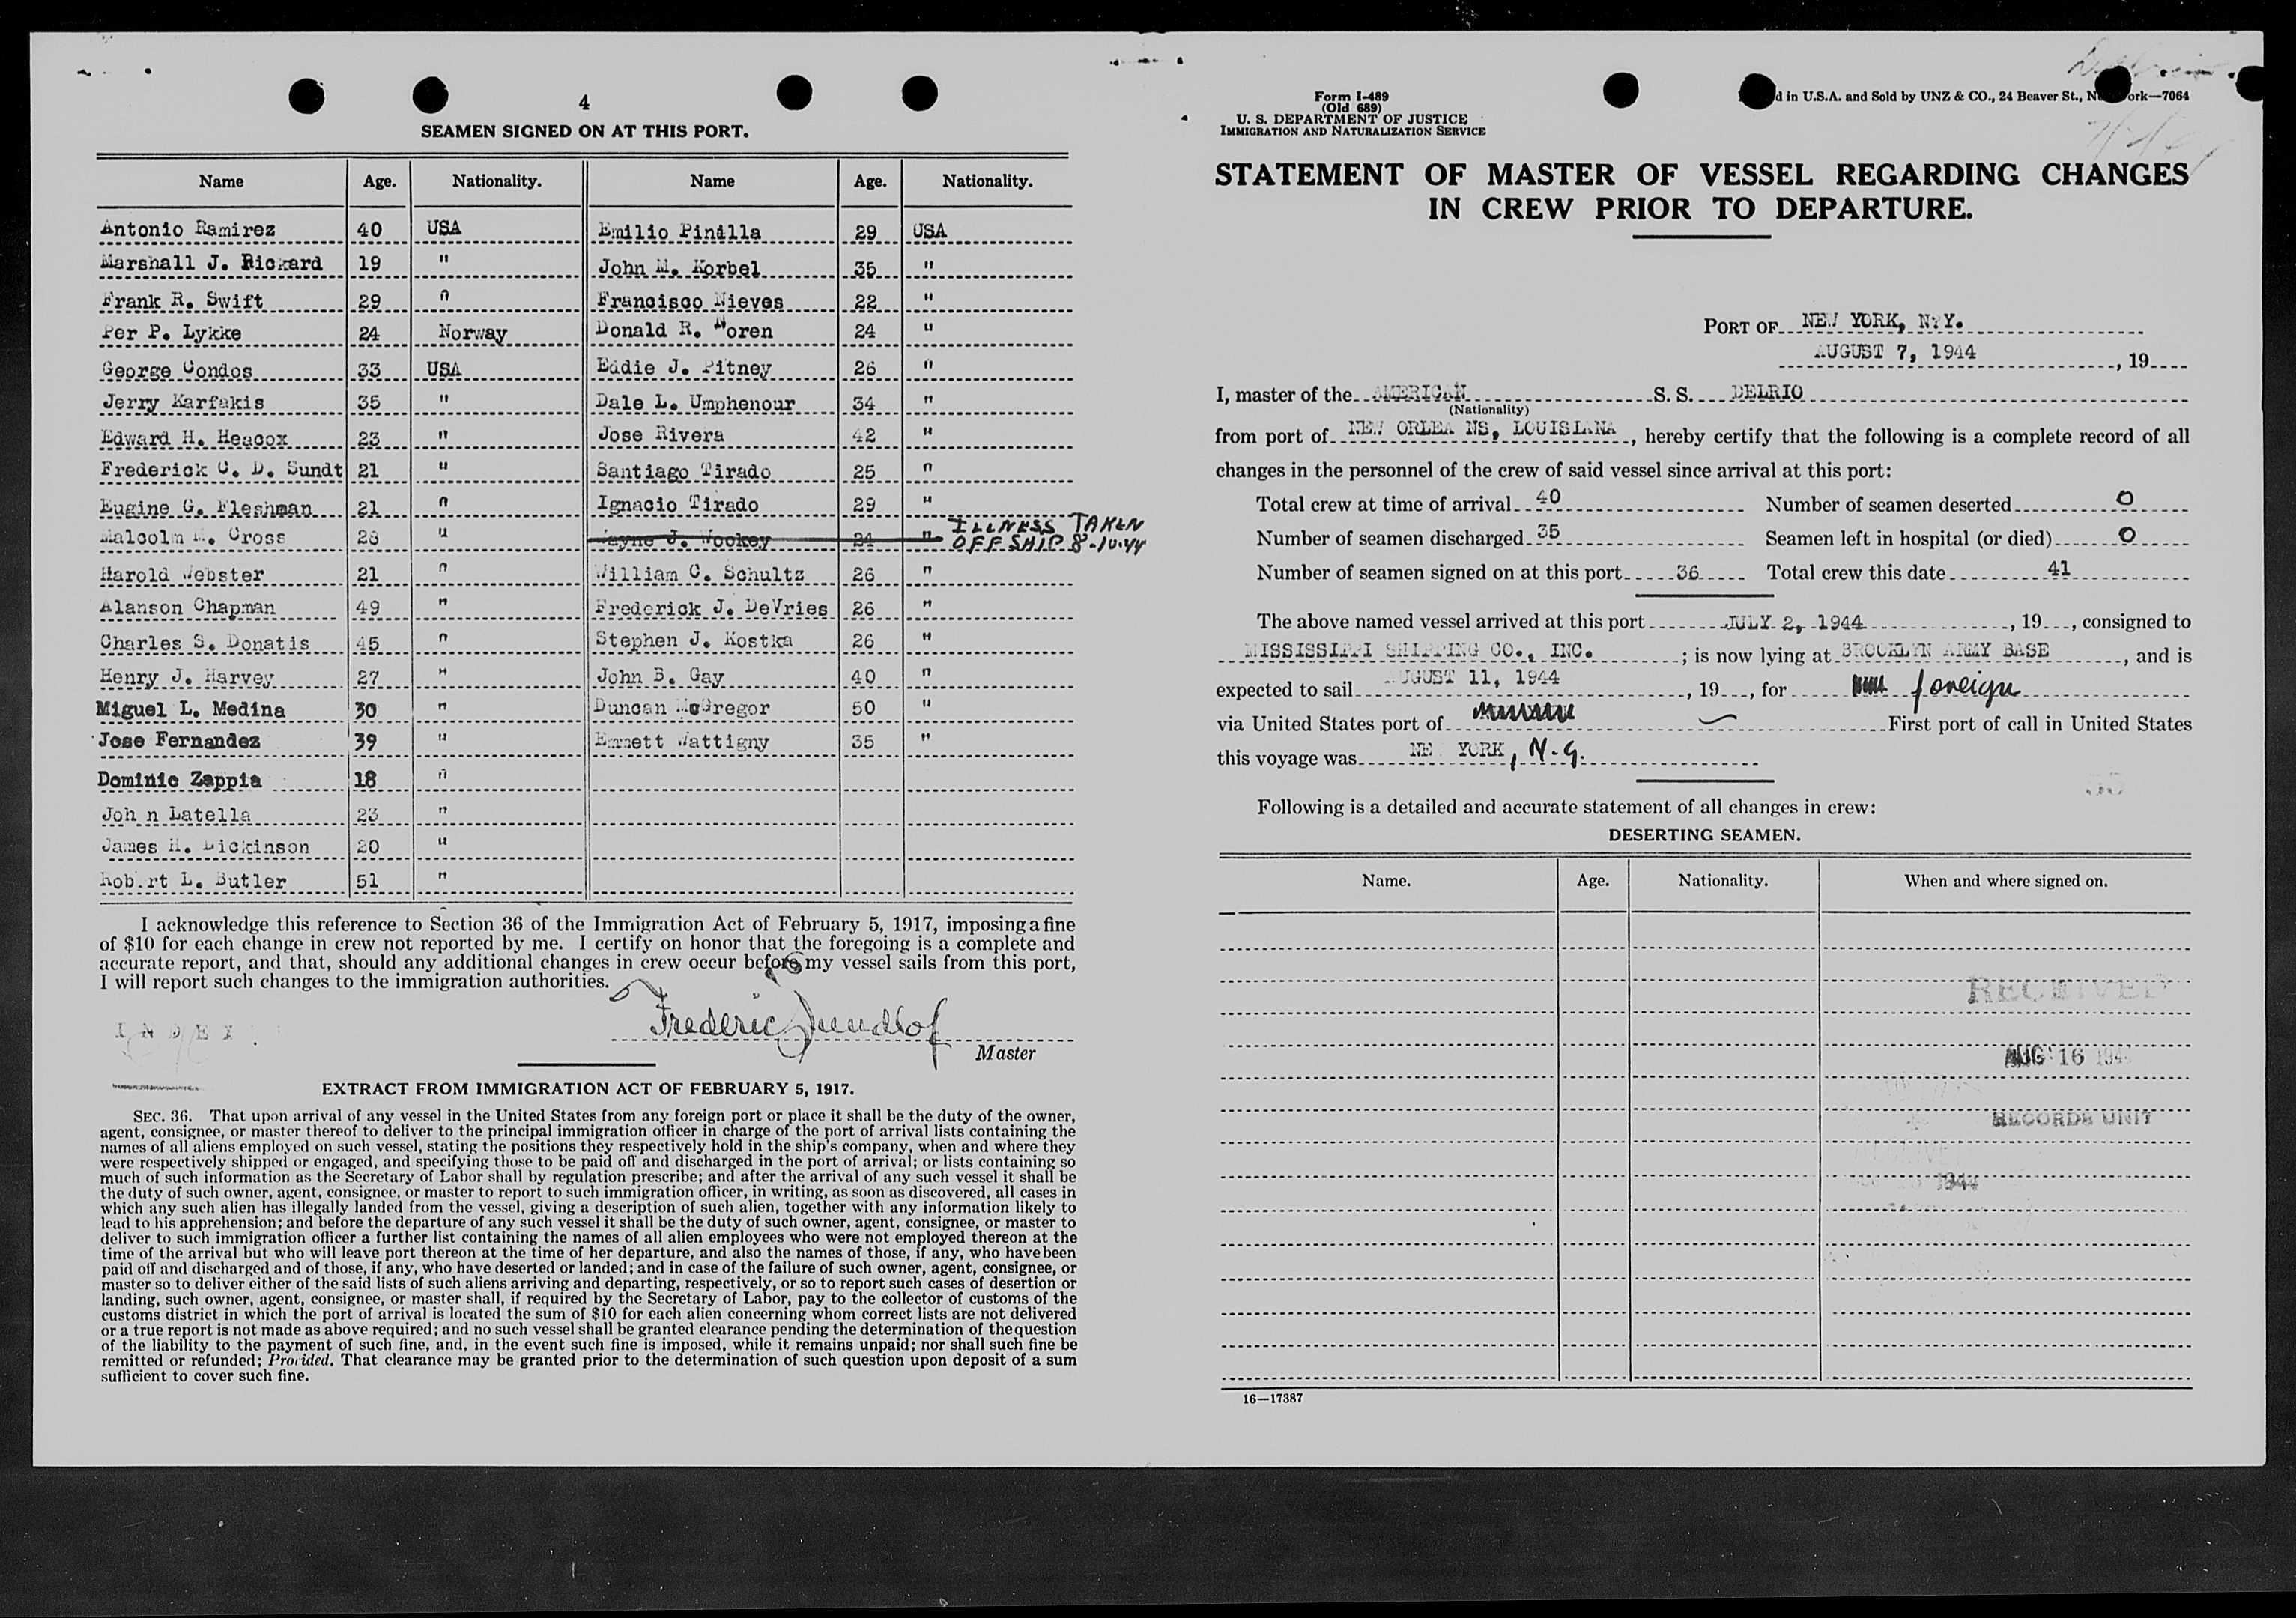 4
SEAMEN SIGNED ON AT THIS PORT.
Name Age. Nationality. Name Age. Nationality.
Antonio Ramirez 40 USA Emilio Pinilla 29 USA
Marshall J. Rickard 19 " John M. Korbel 35 "
Frank R. Swift 29 " Francisco Nieves 22 "
Per P. Lykke 24 Norway Donald R. Noren 24 "
George Condos 33 USA Eddie J. Pitney 26 "
Jerry Karfakis 35 " Dale L. Umphenour 34 "
Edward H. Heacox 23 " Jose Rivera 42 "
Frederick C. D. Sundt 21 " Santiago Tirado 25 "
Eugine G. Fleshman 21 " Ignacio Tirado 29 "
Malcolm M. Cross 28 " Wayne J. Wookey 24 " ILLNESS TAKEN
OFF SHIP 8-10-44
Harold Webster 21 " William C. Schultz 26 "
Alanson Chapman 49 " Frederick J. DeVries 26 "
Charles S. Donatis 45 " Stephen J. Kostka 26 "
Henry J. Harvey 27 " John B. Gay 40 "
Miguel L. Medina 30 " Duncan McGregor 50 "
Jose Fernandez 39 " Emmett Wattigny 35 "
Dominic Zappia 18 "
Joh n Latella 23 "
James H. Dickinson 20 "
Robert L. Butler 51 "
I acknowledge this reference to Section 36 of the Immigration Act of February 5, 1917, imposing a fine
of $10 for each change in crew not reported by me. I certify on honor that the foregoing is a complete and
accurate report, and that, should any additional changes in crew occur before my vessel sails from this port,
I will report such changes to the immigration authorities.
INDEX
Frederic Sundlof
Master
EXTRACT FROM IMMIGRATION ACT OF FEBRUARY 5, 1917.
SEC. 36. That upon arrival of any vessel in the United States from any foreign port or place it shall be the duty of the owner,
agent, consignee, or master thereof to deliver to the principal immigration officer in charge of the port of arrival lists containing the
names of all aliens employed on such vessel, stating the positions they respectively hold in the ship's company, when and where they
were respectively shipped or engaged, and specifying those to be paid off and discharged in the port of arrival; or lists containing so
much of such information as the Secretary of Labor shall by regulation prescribe; and after the arrival of any such vessel it shall be
the duty of such owner, agent, consignee, or master to report to such immigration officer, in writing, as soon as discovered, all cases in
which any such alien has illegally landed from the vessel, giving a description of such alien, together with any information likely to
lead to his apprehension; and before the departure of any such vessel it shall be the duty of such owner, agent, consignee, or master to
deliver to such immigration officer a further list containing the names of all alien employees who were not employed thereon at the
time of the arrival but who will leave port thereon at the time of her departure, and also the names of those, if any, who have been
paid off and discharged and of those, if any, who have deserted or landed; and in case of the failure of such owner, agent, consignee, or
master so to deliver either of the said lists of such aliens arriving and departing, respectively, or so to report such cases of desertion or
landing, such owner, agent, consignee, or master shall, if required by the Secretary of Labor, pay to the collector of customs of the
customs district in which the port of arrival is located the sum of $10 for each alien concerning whom correct lists are not delivered
or a true report is not made as above required; and no such vessel shall be granted clearance pending the determination of the question
of the liability to the payment of such fine, and, in the event such fine is imposed, while it remains unpaid; nor shall such fine be
remitted or refunded; Provided, That clearance may be granted prior to the determination of such question upon deposit of a sum
sufficient to cover such fine.
Form I-489
(Old 689)
U. S. DEPARTMENT OF JUSTICE
IMMIGRATION AND NATURALIZATION SERVICE
Delrio
d in U.S.A. and Sold by UNZ & CO., 24 Beaver St., N ork—7064
STATEMENT OF MASTER OF VESSEL REGARDING CHANGES
IN CREW PRIOR TO DEPARTURE.
PORT OF NEW YORK, N.Y.
AUGUST 7, 1944, 19
I, master of the AMERICAN S. S. DELRIO
(Nationality)
from port of NEW ORLEA NS, LOUISIANA, hereby certify that the following is a complete record of all
changes in the personnel of the crew of said vessel since arrival at this port:
Total crew at time of arrival 40 Number of seamen deserted 0
Number of seamen discharged 35 Seamen left in hospital (or died) 0
Number of seamen signed on at this port 36 Total crew this date 41
The above named vessel arrived at this port JULY 2, 1944, 19, consigned to
MISSISSIPPI SHIPPING CO., INC.; is now lying at BROOKLYN ARMY BASE, and is
expected to sail AUGUST 11, 1944, 19, for foreign
via United States port of First port of call in United States
this voyage was NEW YORK, N.Y.
Following is a detailed and accurate statement of all changes in crew:
DESERTING SEAMEN.
Name. Age. Nationality. When and where signed on.
RECEIVED
AUG 16 1944
RECORDS UNIT
1944
16—17387